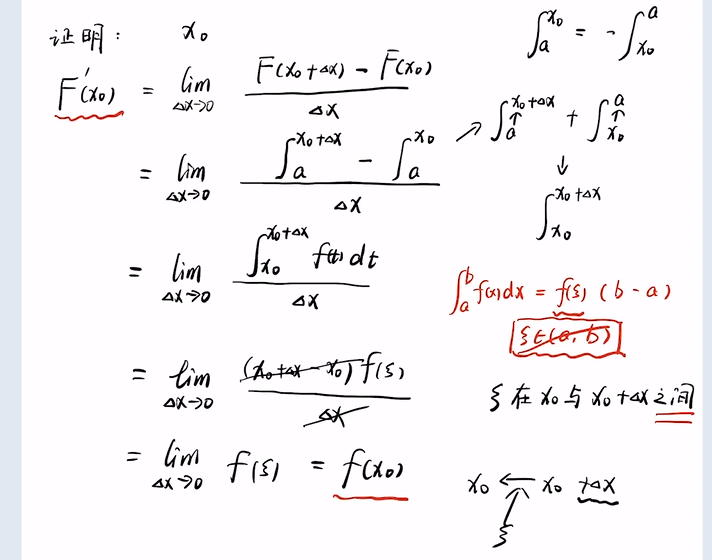 证明: x₀
F'(x₀) = lim_{Δx→0} \frac{F(x₀+Δx) - F(x₀)}{Δx}
= lim_{Δx→0} \frac{∫_a^{x₀+Δx} - ∫_a^{x₀}}{Δx}
= lim_{Δx→0} \frac{∫_{x₀}^{x₀+Δx} f(t) dt}{Δx}
= lim_{Δx→0} \frac{(x₀+Δx - x₀) f(ξ)}{Δx}
= lim_{Δx→0} f(ξ) = f(x₀)
∫_a^{x₀} = - ∫_{x₀}^a
↗ ∫_a^{x₀+Δx} + ∫_{x₀}^a
↓
∫_{x₀}^{x₀+Δx}
∫_a^b f(x)dx = f(ξ) (b-a)
ξ∈(a,b)
ξ 在 x₀ 与 x₀+Δx 之间
x₀ ← x₀ +Δx
ξ